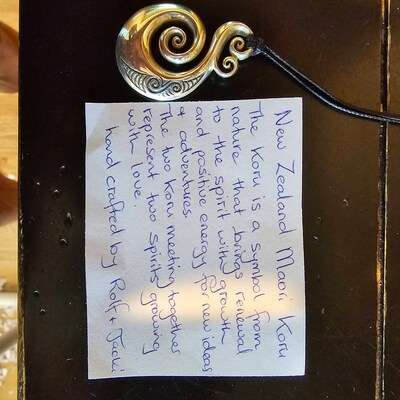 New Zealand Maori Koru
The Koru is a symbol from
nature that brings renewal
to the spirit with growth
and positive energy for new ideas
& adventures.
The two Koru meeting together
represent two spirits growing
with love.
hand crafted by Rolf + Jacki